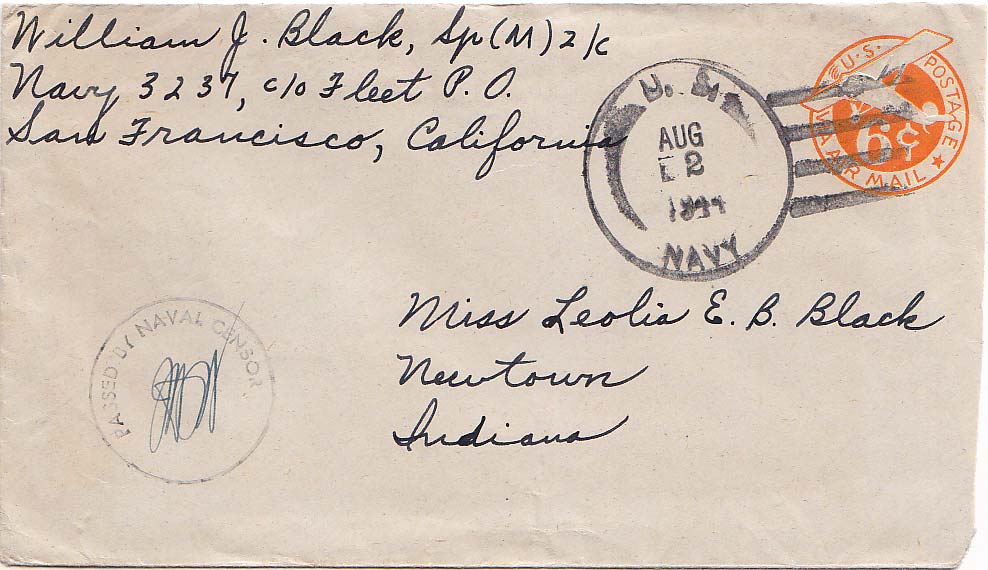 William J. Black, Sp(M)2/c
Navy 3237, c/o Fleet P.O.
San Francisco, California
U. S.
AUG
2
1944
NAVY
U.S. POSTAGE
6¢
VIA AIR MAIL
PASSED BY NAVAL CENSOR
Miss Leolia E. B. Black
Newtown
Indiana